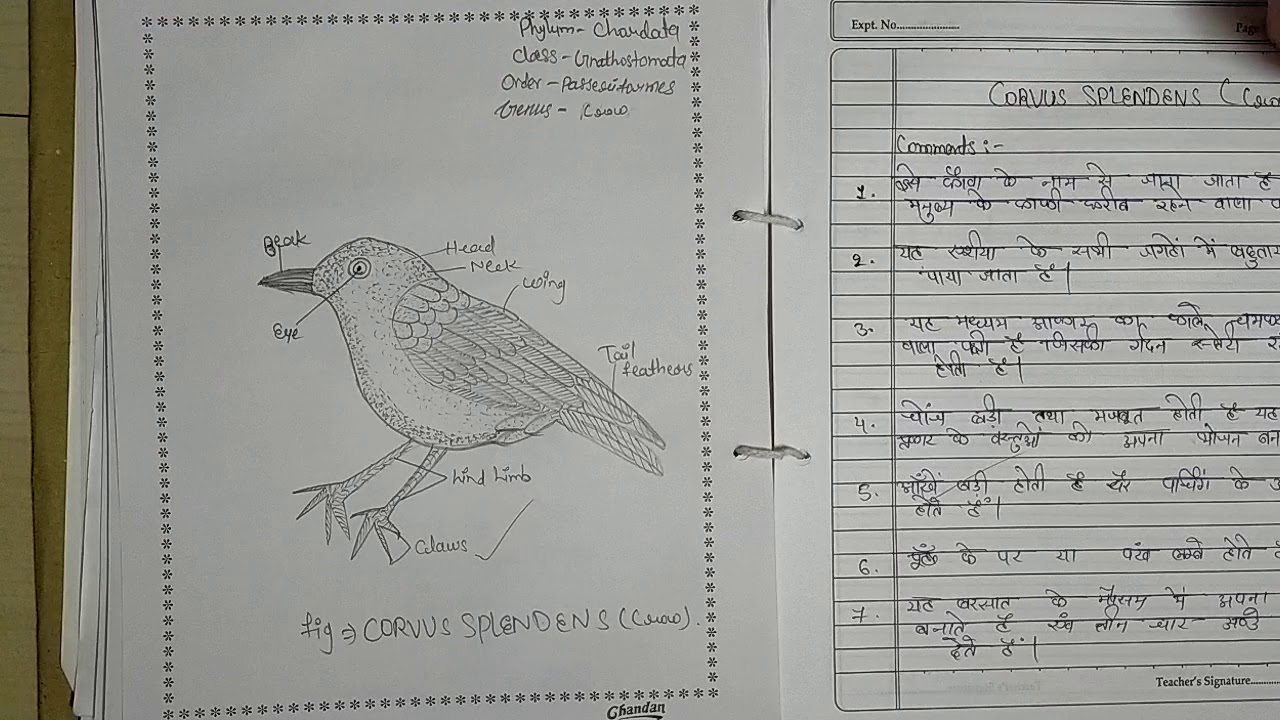 Phylum- Chordata
Class- Gnathostomata
Order- Passeriformes
Genus - Crow
Beak
Head
Neck
Wing
Eye
Tail
feathers
Hind limb
Claws
fig ⇒ CORVUS SPLENDENS (Crow).
Chandan
Expt. No.
Page
CORVUS SPLENDENS (Crow
Comments :-
1. इसे कौवा के नाम से जाना जाता है
मनुष्य के काफी करीब रहने वाला
2. यह एशीया के सभी जगहों में
पाया जाता है।
3. यह मध्यम आकार का काले
वाला पक्षी है जिसकी गर्दन स्लेटी
होती है।
4. चोंच बड़ी तथा मजबूत होती है यह
के वस्तुओं को अपना भोजन
5. आँखें बड़ी होती है पैर पर्चिंग के
होते हैं।
6. पूँछ के पर या पंख लम्बे होते
7. यह बरसात के मौसम में अपना
बनाते है एंव तीन चार अण्डे
देते हैं।
Teacher's Signature